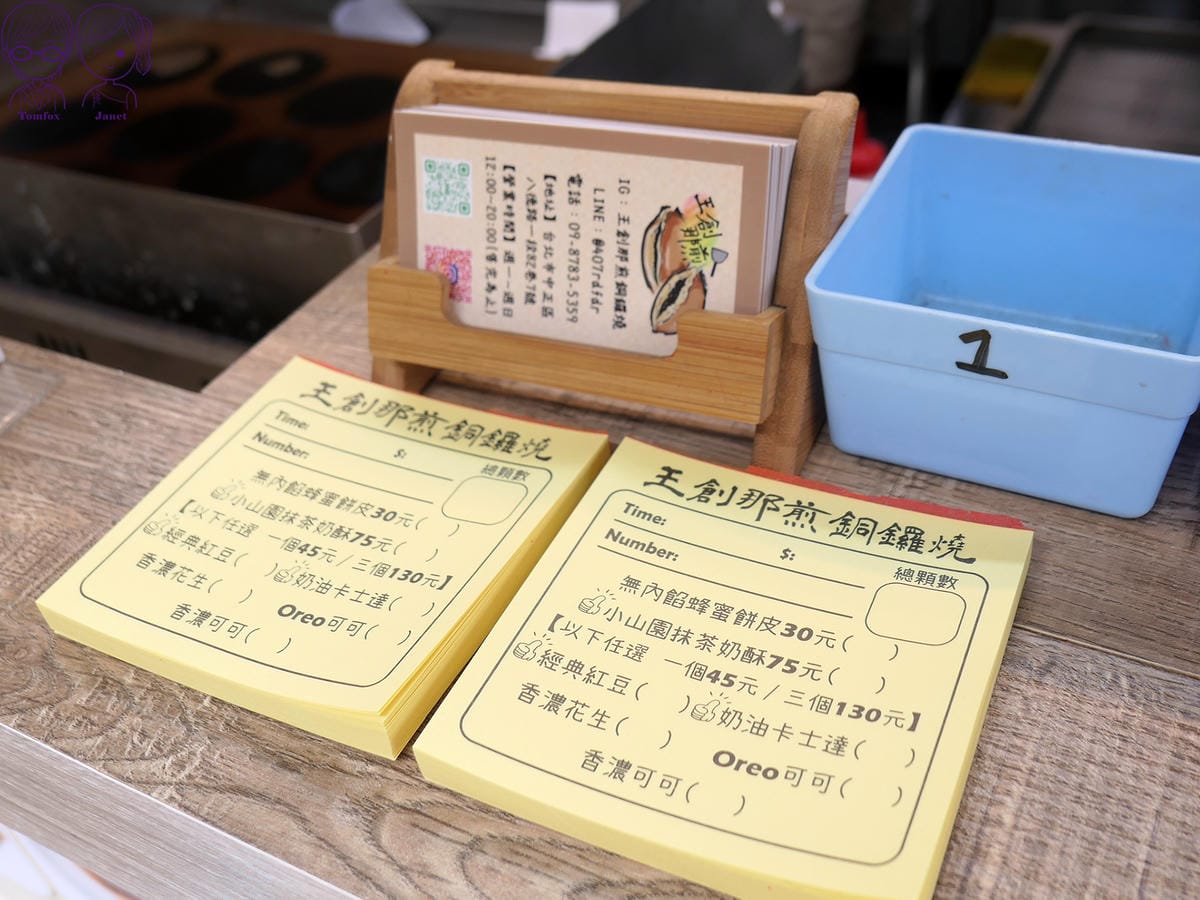 Tomfox Janet
王創
那煎
IG：王創那煎銅鑼燒
LINE：@407rdfdr
電話：09-8783-5359
【地址】台北市中正區
八德路一段82巷7號
【營業時間】週一~週日
12:00~20:00(售完為止)
1
王創那煎銅鑼燒
Time:
$:
Number:
總顆數
無內餡蜂蜜餅皮30元( )
小山園抹茶奶酥75元( )
【以下任選 一個45元 / 三個130元】
經典紅豆( ) 奶油卡士達( )
香濃花生( ) Oreo可可( )
香濃可可( )
王創那煎銅鑼燒
Time:
$:
Number:
總顆數
無內餡蜂蜜餅皮30元( )
小山園抹茶奶酥75元( )
【以下任選 一個45元 / 三個130元】
經典紅豆( ) 奶油卡士達( )
香濃花生( ) Oreo可可( )
香濃可可( )